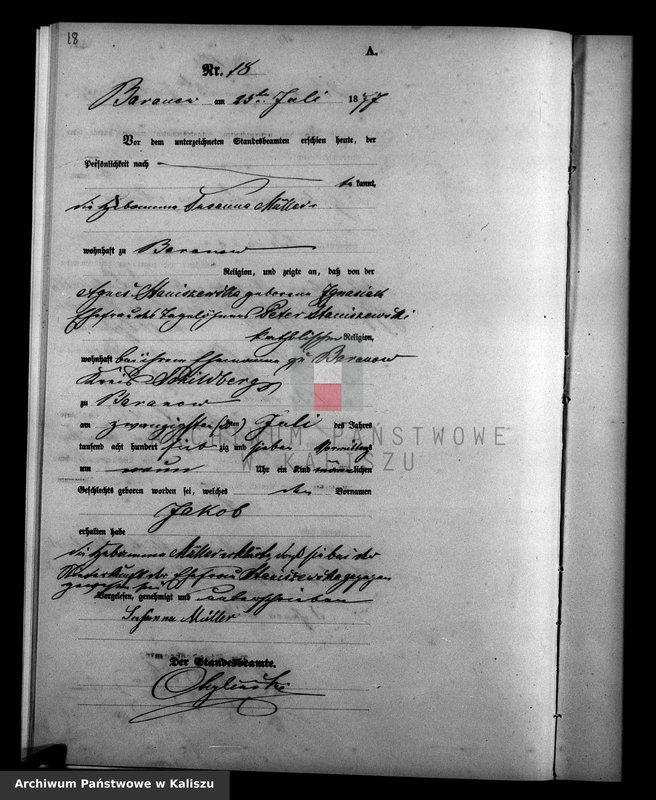 18
A.
Nr. 18
Baranow am 25ten Juli 1877
Vor dem unterzeichneten Standesbeamten erschien heute, der
Persönlichkeit nach
be kannt,
die Hebamme Susanna Müller
wohnhaft zu Baranow
Religion, und zeigte an, daß von der
Agnes Staniszewska geborene Ignasiak
Ehefrau des Tagelöhners Peter Staniszewski
katholischer Religion,
wohnhaft bei ihrem Ehemanne zu Baranow
Kreis Schildberg
zu Baranow
am zwanzigsten (20ten) Juli des Jahres
tausend acht hundert sieb zig und sieben Vormittag
um neun Uhr ein Kind männlichen
Geschlechts geboren worden sei, welches den Vornamen
Jakob
erhalten habe
die Hebamme Müller erklärte daß sie bei der
Niederkunft der Ehefrau Staniszewska zugegen
gewesen sei
Vorgelesen, genehmigt und unterschrieben
Susanna Müller
Der Standesbeamte.
ARCHIWUM PAŃSTWOWE
W KALISZU
Archiwum Państwowe w Kaliszu